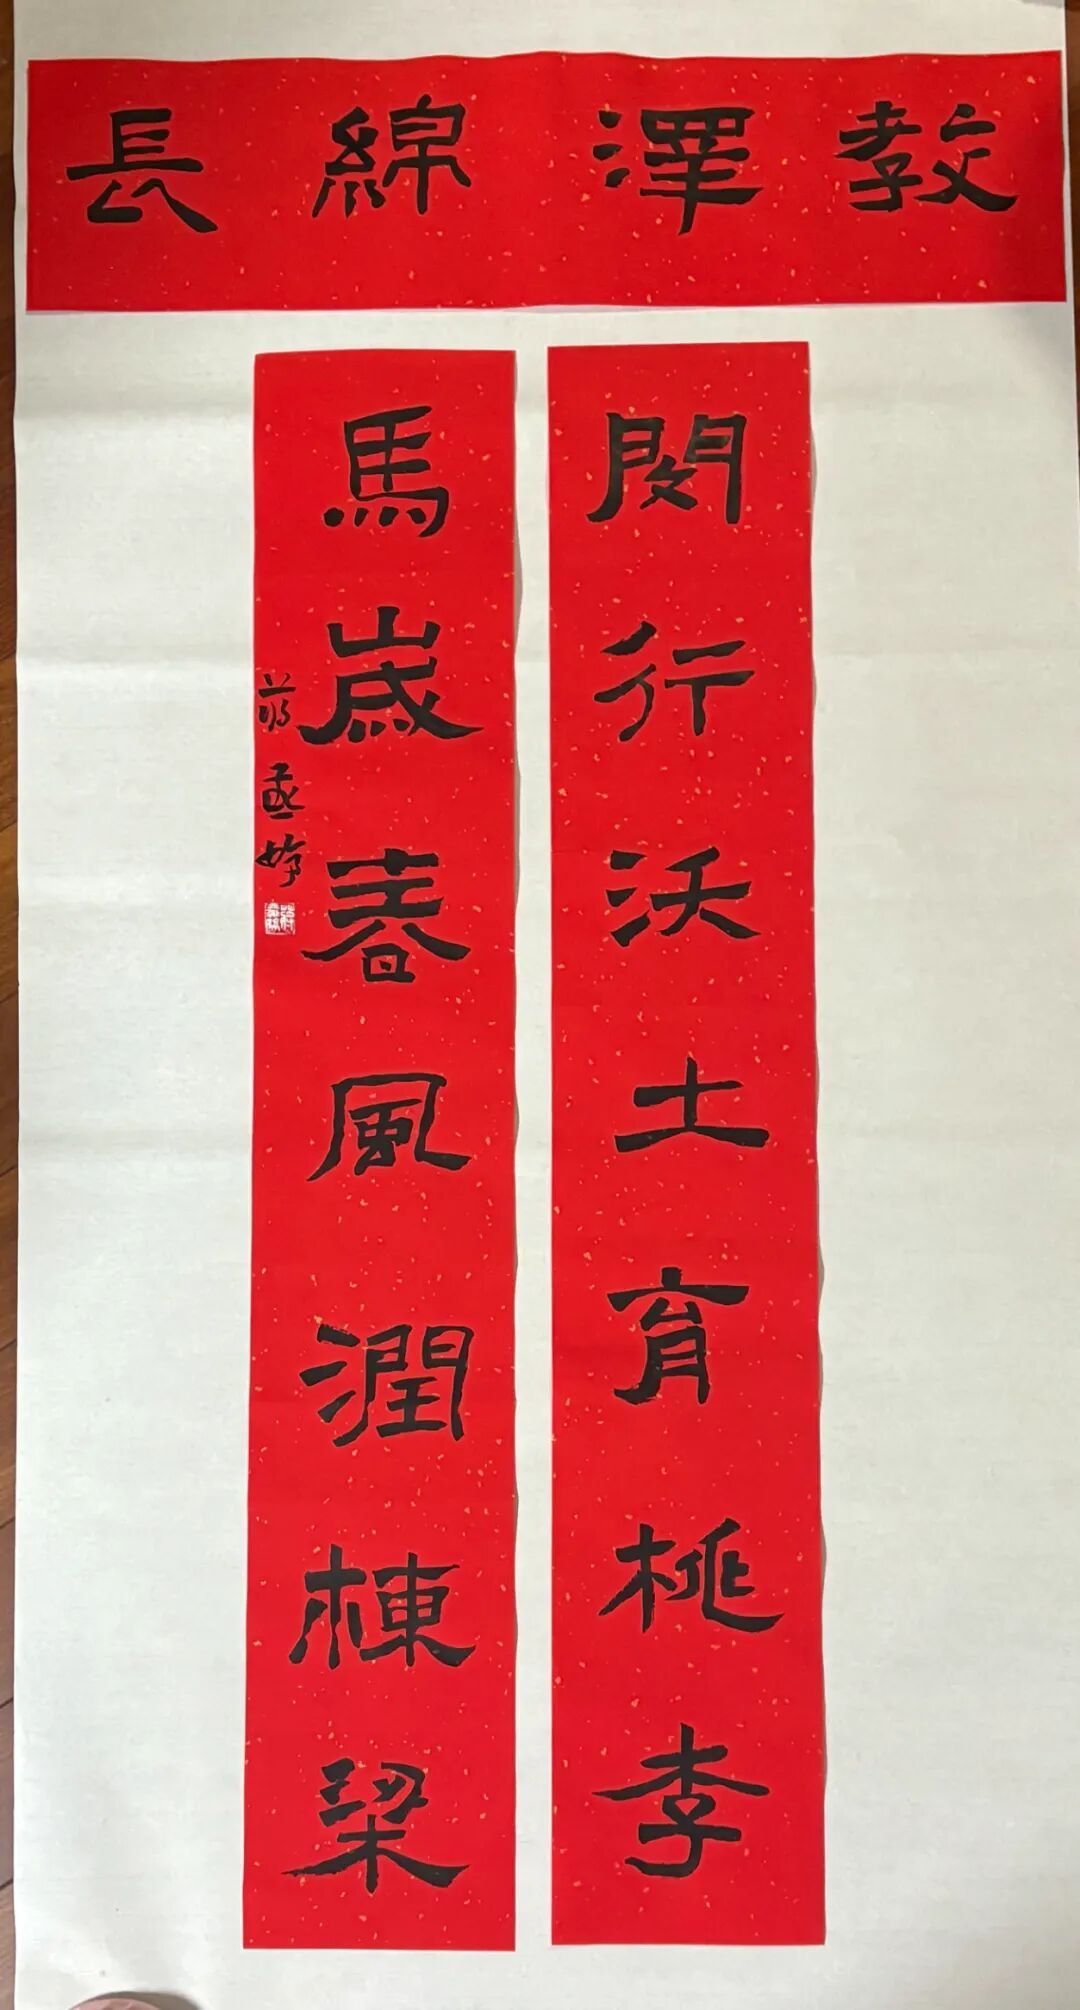 教澤綿長
閔行沃土育桃李
馬歲春風潤棟梁